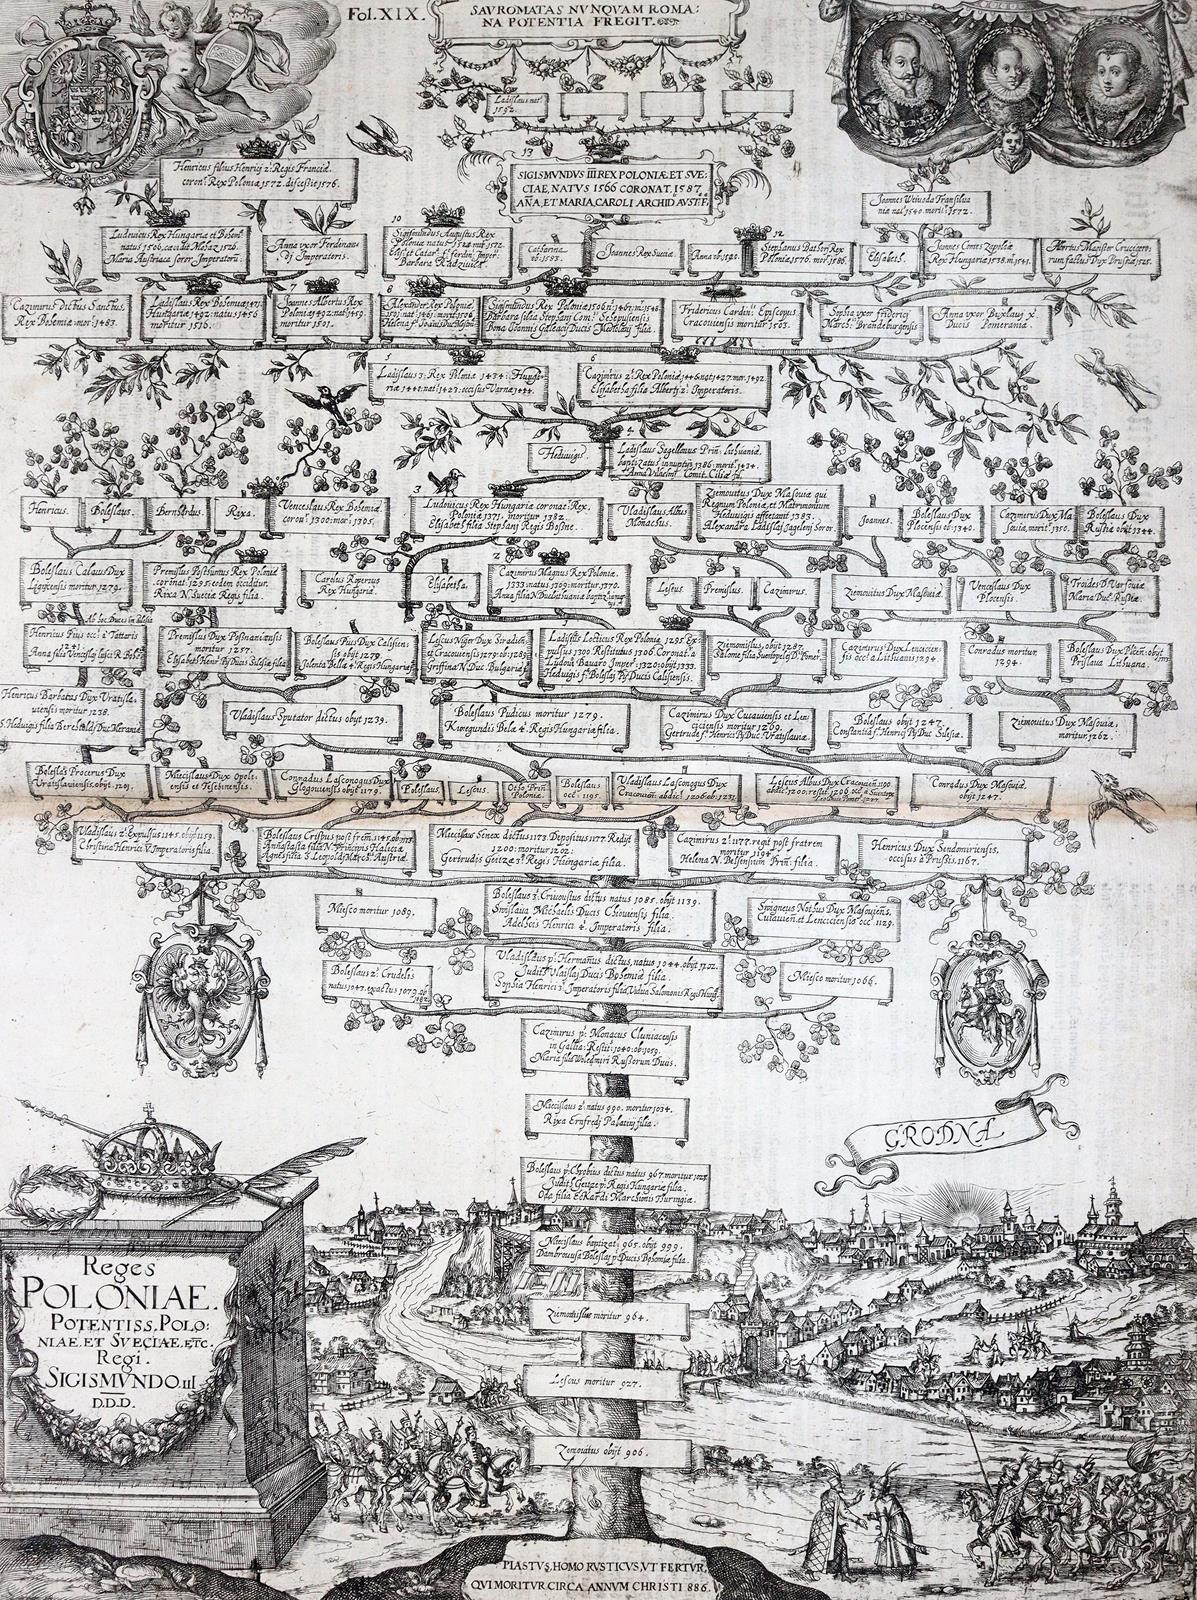 Fol. XIX.
SAVROMATAS NVNQVAM ROMA:
NA POTENTIA FREGIT.
Ladislaus nat.
1592.
11
Henricus filius Henrici 2. Regis Franciæ.
coron. Rex Poloniæ 1572. discessit 1576.
13
SIGISMVNDVS III REX POLONIÆ ET SVE:
CIAE, NATVS 1566 CORONAT. 1587
AÑA, ET MARIA, CAROLI ARCHID AVST. F.
Joannes Weiuoda Transilua
niæ nat. 1540. morit. 1572.
Ludouicus Rex Hungariæ et Bohem.
natus 1506, occidit Mohaz 1526.
Maria Austriaca soror Imperatoris.
Anna vxor Ferdinan
di Imperatoris.
10
Sigismundus Augustus Rex
Poloniæ natus 1520 mor. 1572.
Elis. et Catar. f. Ferdin. Imper.
Barbara Radziuila
Catharina
ob. 1583.
Joannes Rex Sueciæ
Anna
12
Stephanus Bator Rex
Poloniæ 1576. mor. 1586.
Elisabet.
Joannes Comes Zapoliæ
Rex Hungariæ 1538. m. 1541.
Albertus Magister Cruciger:
rum factus Dux Prussiæ 1525.
Cazimirus dictus Sanctus,
Rex Bohemiæ mor. 1483.
Ladislaus Rex Bohemiæ 1471
Hungariæ 1492. natus 1456
moritur 1516.
7
Joannes Albertus Rex
Poloniæ 1492. nat. 1459
moritur 1501.
8
Alexander Rex Poloniæ
1501. nat. 1461. mor. 1506
9
Sigismundus Rex Poloniæ 1506. n. 1467. m. 1548
Barbara filia Stephani Com. Scepusiensis
Bona Joannis Galeacij Ducis Mediolani filia.
Fridericus Cardin. Episcopus
Cracouiensis moritur 1503.
Sophia vxor friderici
March. Brandeburgensis
Anna vxor Buxlaus X
Ducis Pomeraniæ.
5
Ladislaus 3. Rex Poloniæ 1434. Hunga-
riæ 1440. nat. 1423. occisus Varnæ 1444.
6
Cazimirus 2. Rex Poloniæ 1446. nat. 1427. mor. 1492.
Elisabetha filia Alberti 2. Imperatoris.
4
Heduuigis.
Ladislaus Jagellonus Prin. Lithuaniæ
baptizatus inunptus 1386. morit. 1434.
Anna Vilhelmi Comit. Ciliæ fil.
Henricus.
Boleslaus.
Bernardus.
Rixa.
Venceslaus Rex Bohemiæ
coron. 1300. mor. 1305.
3
Ludouicus Rex Hungariæ coronat. Rex
Poloniæ 1371. moritur 1382.
Elisabet filia Stephani Regis Bosne.
Vladislaus Albus
Monachus.
Ziemouitus Dux Masouiæ qui
Regnum Poloniæ, et Matrimonium
Heduigis affectauit 1383.
Alexandra Ladislaj Jageleni Soror
Joannes.
Boleslaus Dux
Plocensis ob. 1340.
Cazimirus Dux Ma
souiæ, morit. 1350.
Boleslaus Dux
Russiæ obijt 1344.
Boleslaus Caluus Dux
Ligiycensis moritur 1279.
Premislaus Posthumus Rex Poloniæ
coronat. 1295. eodem occiditur.
Rixa N. Sueciæ Regis filia.
Carolus Ropertus
Rex Hungariæ.
Elisabetha.
2
Cazimirus Magnus Rex Poloniæ.
1333. natus 1309. moritur 1370.
Anna filia N. Ducis Lituaniæ
Lescus.
Premislus.
Cazimirus.
Ziemouitus Dux Masouiæ.
Venceslaus Dux
Plocensis.
Troides D. Varsouiæ
Maria Duc. Russiæ.
Henricus Pius occ. à Tattaris
1241.
Anna filia Venceslaj
Premislaus Dux Posnaniensis
moritur 1257.
Elisabet Henr. Pij Ducis Silesiæ filia
Boleslaus Pius Dux Calisien:
sis obijt 1279.
Jolenta Bellæ 4. Regis Hungariæ f.
Lescus Niger Dux Siradien:
et Cracouiensis 1279. ob. 1289.
Griffina N. Duc. Bulgariæ
1
Ladislaus Locticus Rex Poloniæ 1295. Ex
pulsus 1300. Restitutus 1306. Coronat. à
Ludou. Bauaro Imper. 1320. obijt 1333.
Hedvigis f. Boleslaj Pij Ducis Calisiensis.
Ziemomislus, obijt 1287.
Salome filia Suentopelci D. Pomer.
Cazimirus Dux Lencicien:
sis occ. à Lithuanis 1294
Conradus moritur
1294.
Boleslaus Dux Plocen. obijt
Prislaua Lithuana.
Henricus Barbatus Dux Vratisla.
uiensis moritur 1238.
S. Heduigis filia Bertoldaj Duc. Meraniæ
Vladislaus Sputator dictus obijt 1239.
Boleslaus Pudicus moritur 1279.
Kunegundis Belæ 4. Regis Hungariæ filia.
Cazimirus Dux Cuiauiensis et Len
ciciensis moritur 1269.
Gertrude f. Henrici Pij Duc. Vratislauiæ.
Boleslaus obijt 1247.
Constantia f. Henrici Pij Duc. Silesiæ.
Ziemouitus Dux Masouiæ,
moritur. 1262.
Boleslaus Procerus Dux
Vratislauiensis. obijt. 1201.
Miecislaus Dux Opole:
iensis et Teschinensis.
Conradus Lasconogus Dux
Glogouiensis obijt 1179.
Boleslaus.
Lescus.
Otto Prin.
Poloniæ.
Boleslaus
occ. 1195.
Vladislaus Lasconogus Dux
Cracouien. abdic. 1206. ob. 1231.
Lescus Albus Dux Cracouien. 1190
abdic. 1200. restit. 1206 occ. à Suentop.
Conradus Dux Masouiæ
obijt 1247.
Vladislaus 2. Expulsus 1145. obijt 1159.
Christina Henrici V. Imperatoris filia.
Boleslaus Crispus post frem. 1145. ob. 1173
Annastasia filia N. Principis Haliciæ
Agnes filia S. Leopoldi March. Austriæ.
Miecislaus Senex dictus 1173. Depositus 1177. Redijt
1200. moritur 1202.
Gertrudis Geitzæ 2. Regis Hungariæ filia.
Cazimirus 2. 1177. regit post fratrem
moritur 1194
Helena N. Belsensium Prin. filia.
Henricus Dux Sendomiriensis,
occisus à Prussis. 1167.
Miesco moritur 1089.
Boleslaus 3. Criuoustus dictus natus 1085. obijt 1139.
Sbislaua Michaelis Ducis Chiouensis filia.
Adelheis Henrici 4. Imperatoris filia.
Swigneus Nothus Dux Masouiens.
Cuiauien. et Lenciciensis occ. 1129.
Boleslaus 2. Crudelis
natus 1042. exactus 1079. ob
1082.
Vladislaus p. Hermanus dictus, natus 1044. obijt 1102.
Judit Vlaislaj Ducis Bohemiæ filia.
Sophia Henrici 3. Imperatoris filia, Vidua Salomonis Regis Hung.
Miesco moritur 1066.
Cazimirus p. Monacus Cluniacensis
in Gallia: Restit. 1040. ob. 1059.
Maria filia Wolodmiri Russorum Ducis.
Miecislaus 2. natus 990. moritur 1034.
Rixa Ernfredj Palatini filia.
GRODNA
Boleslaus p. Chrobius dictus natus 967. moritur 1025
Judit Geitzæ p. Regis Hungariæ filia.
Oda filia Ekkardi Marchionis Thuringiæ.
Miecislaus baptizat. 965. obijt 999.
Dambrowca Boleslaj p. Ducis Bohemiæ filia.
Ziemomislus moritur 964.
Lescus moritur 927.
Zemouitus obijt 906.
Reges
POLONIAE.
POTENTISS. POLO:
NIAE. ET SVECIAE. ETC:
Regi.
SIGISMVNDO. III
D.D.D.
PIASTVS, HOMO RVSTICVS, VT FERTVR,
QVI MORITVR CIRCA ANNVM CHRISTI 886.